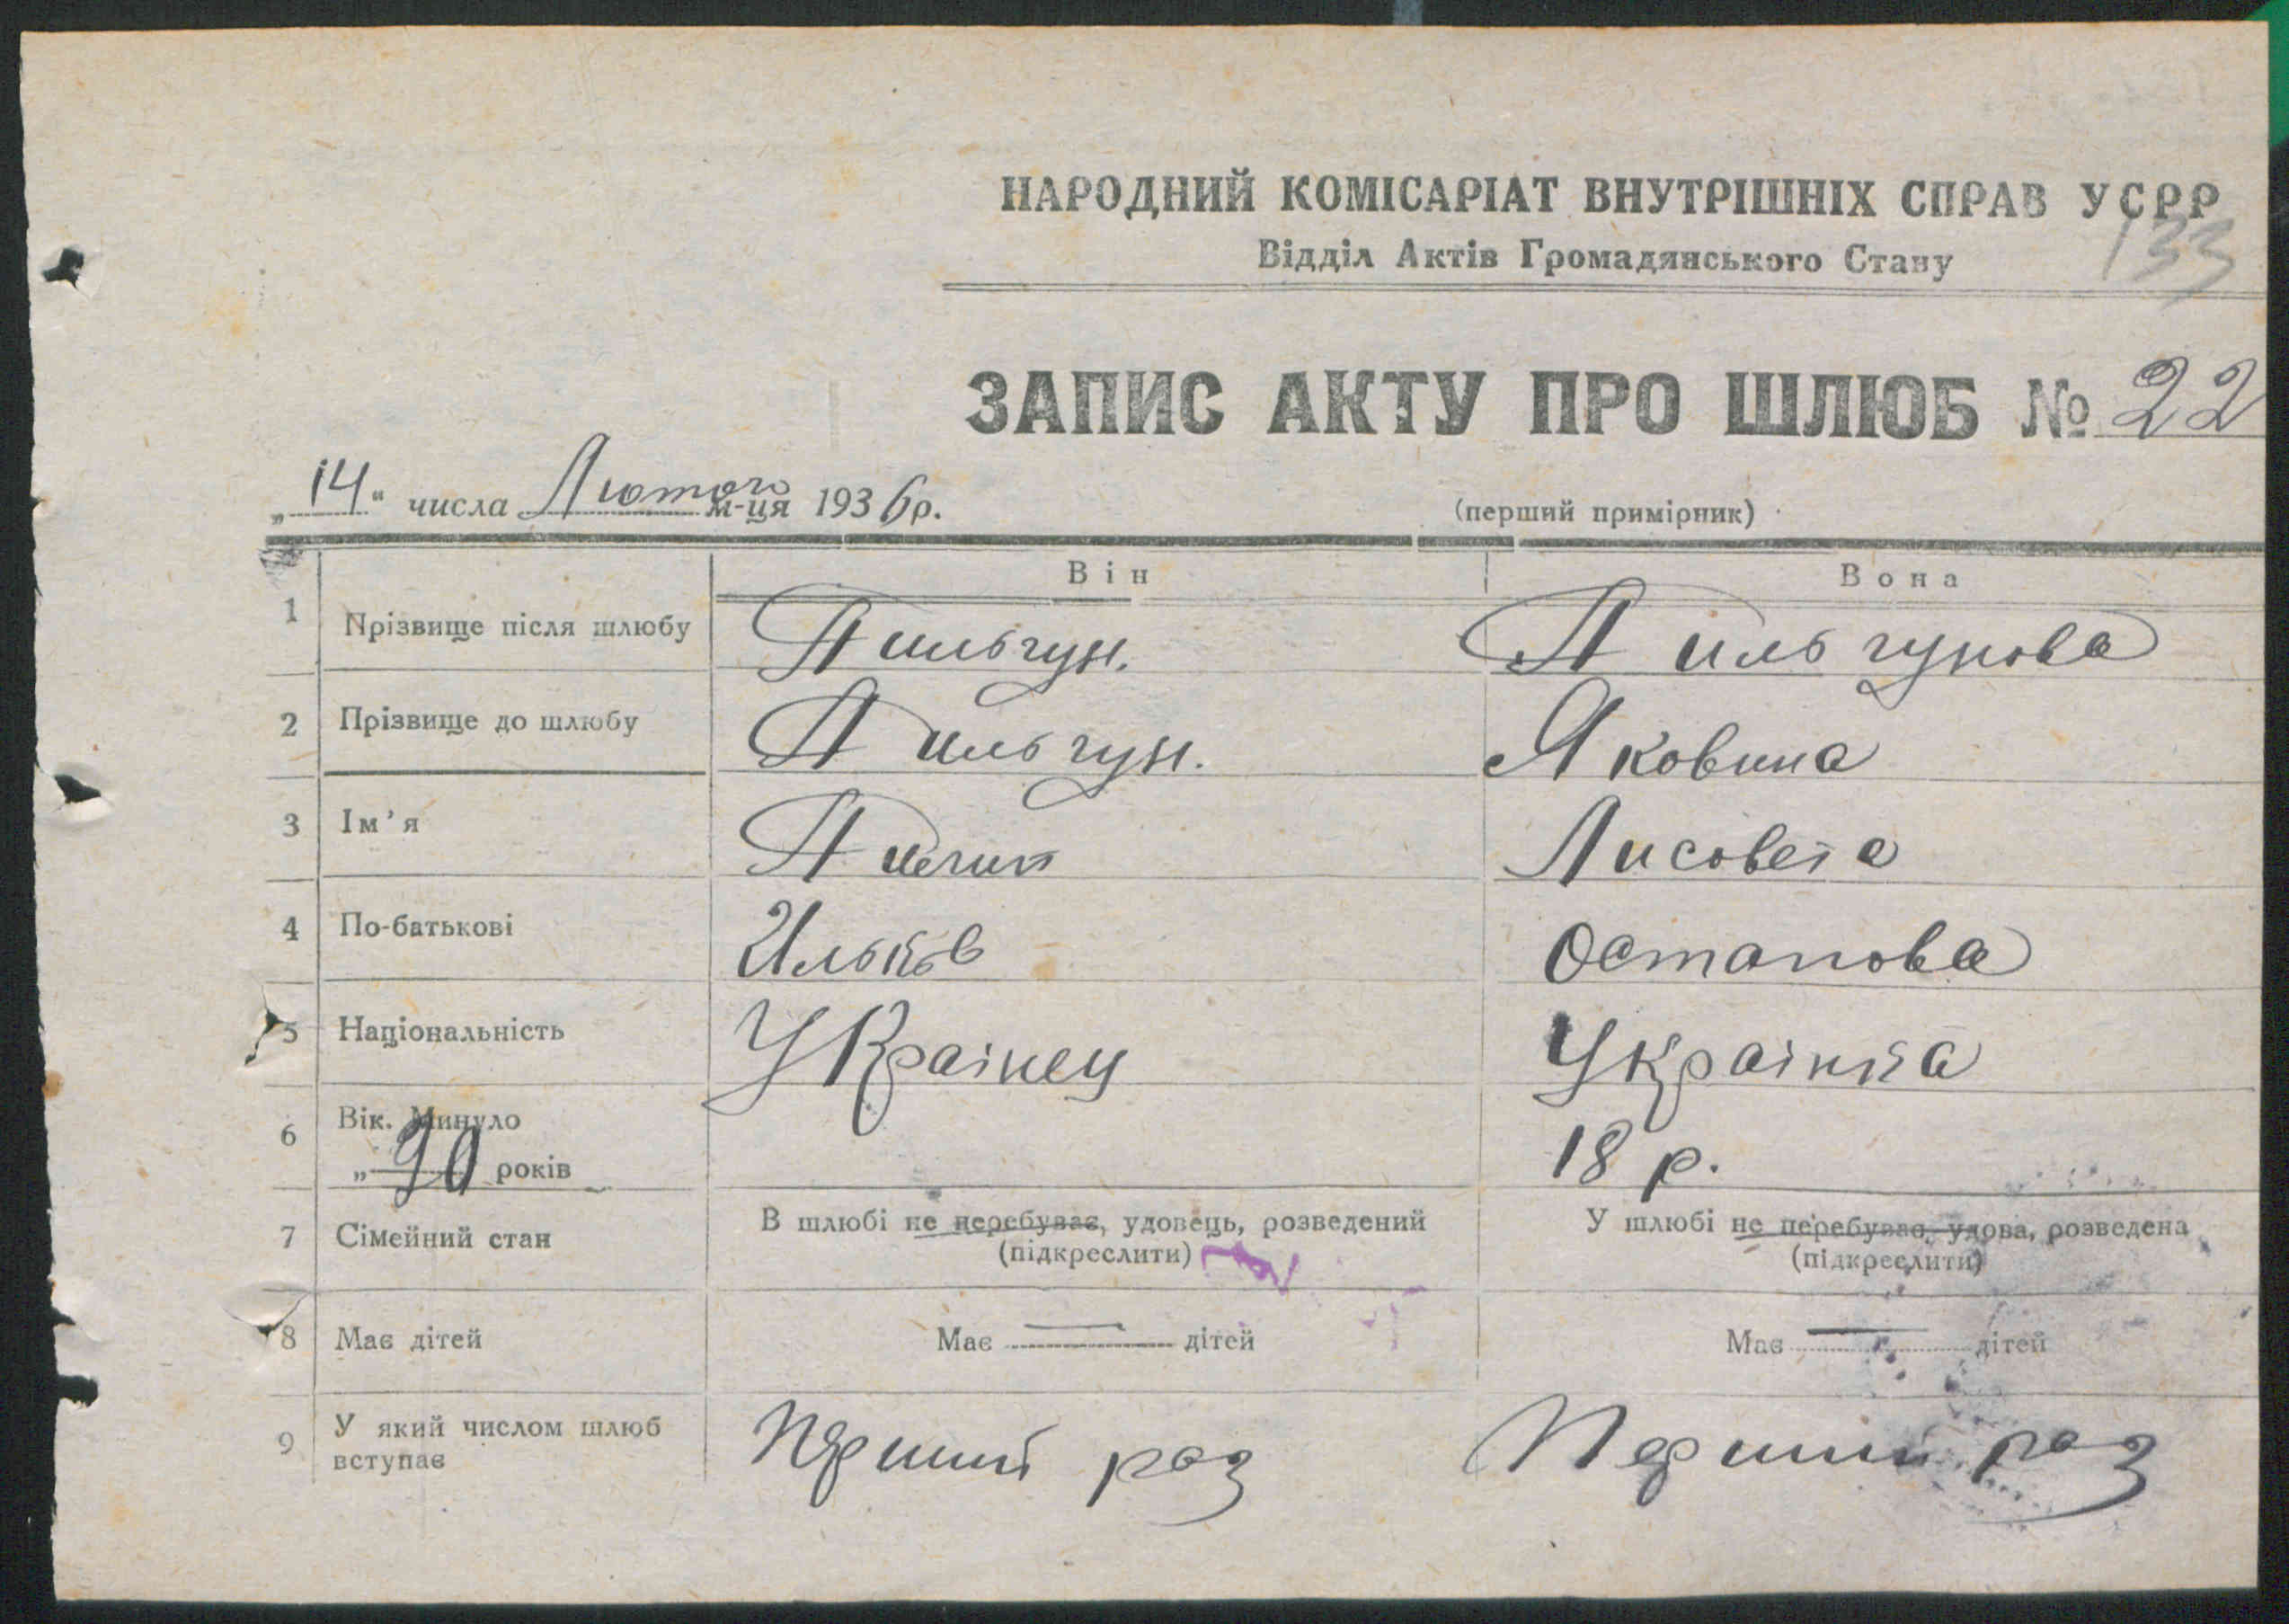 НАРОДНИЙ КОМІСАРІАТ ВНУТРІШНІХ СПРАВ УСРР
133
Відділ Актів Громадянського Стану
ЗАПИС АКТУ ПРО ШЛЮБ № 22
„14“ числа Лютого м-ця 1936 р.
(перший примірник)
Він Вона
1 Прізвище після шлюбу Пильгун. Пильгунова
2 Прізвище до шлюбу Пильгун. Яковина
3 Ім’я Пилип Лисовета
4 По-батькові Ильків Остапова
5 Національність Українец Українка
6 Вік. Минуло
„20 років 18 р.
7 Сімейний стан В шлюбі не перебуває, удовець, розведений У шлюбі не перебуває, удова, розведена
(підкреслити) (підкреслити)
8 Має дітей Має — дітей Має — дітей
9 У який числом шлюб вступає Перший раз Перший раз